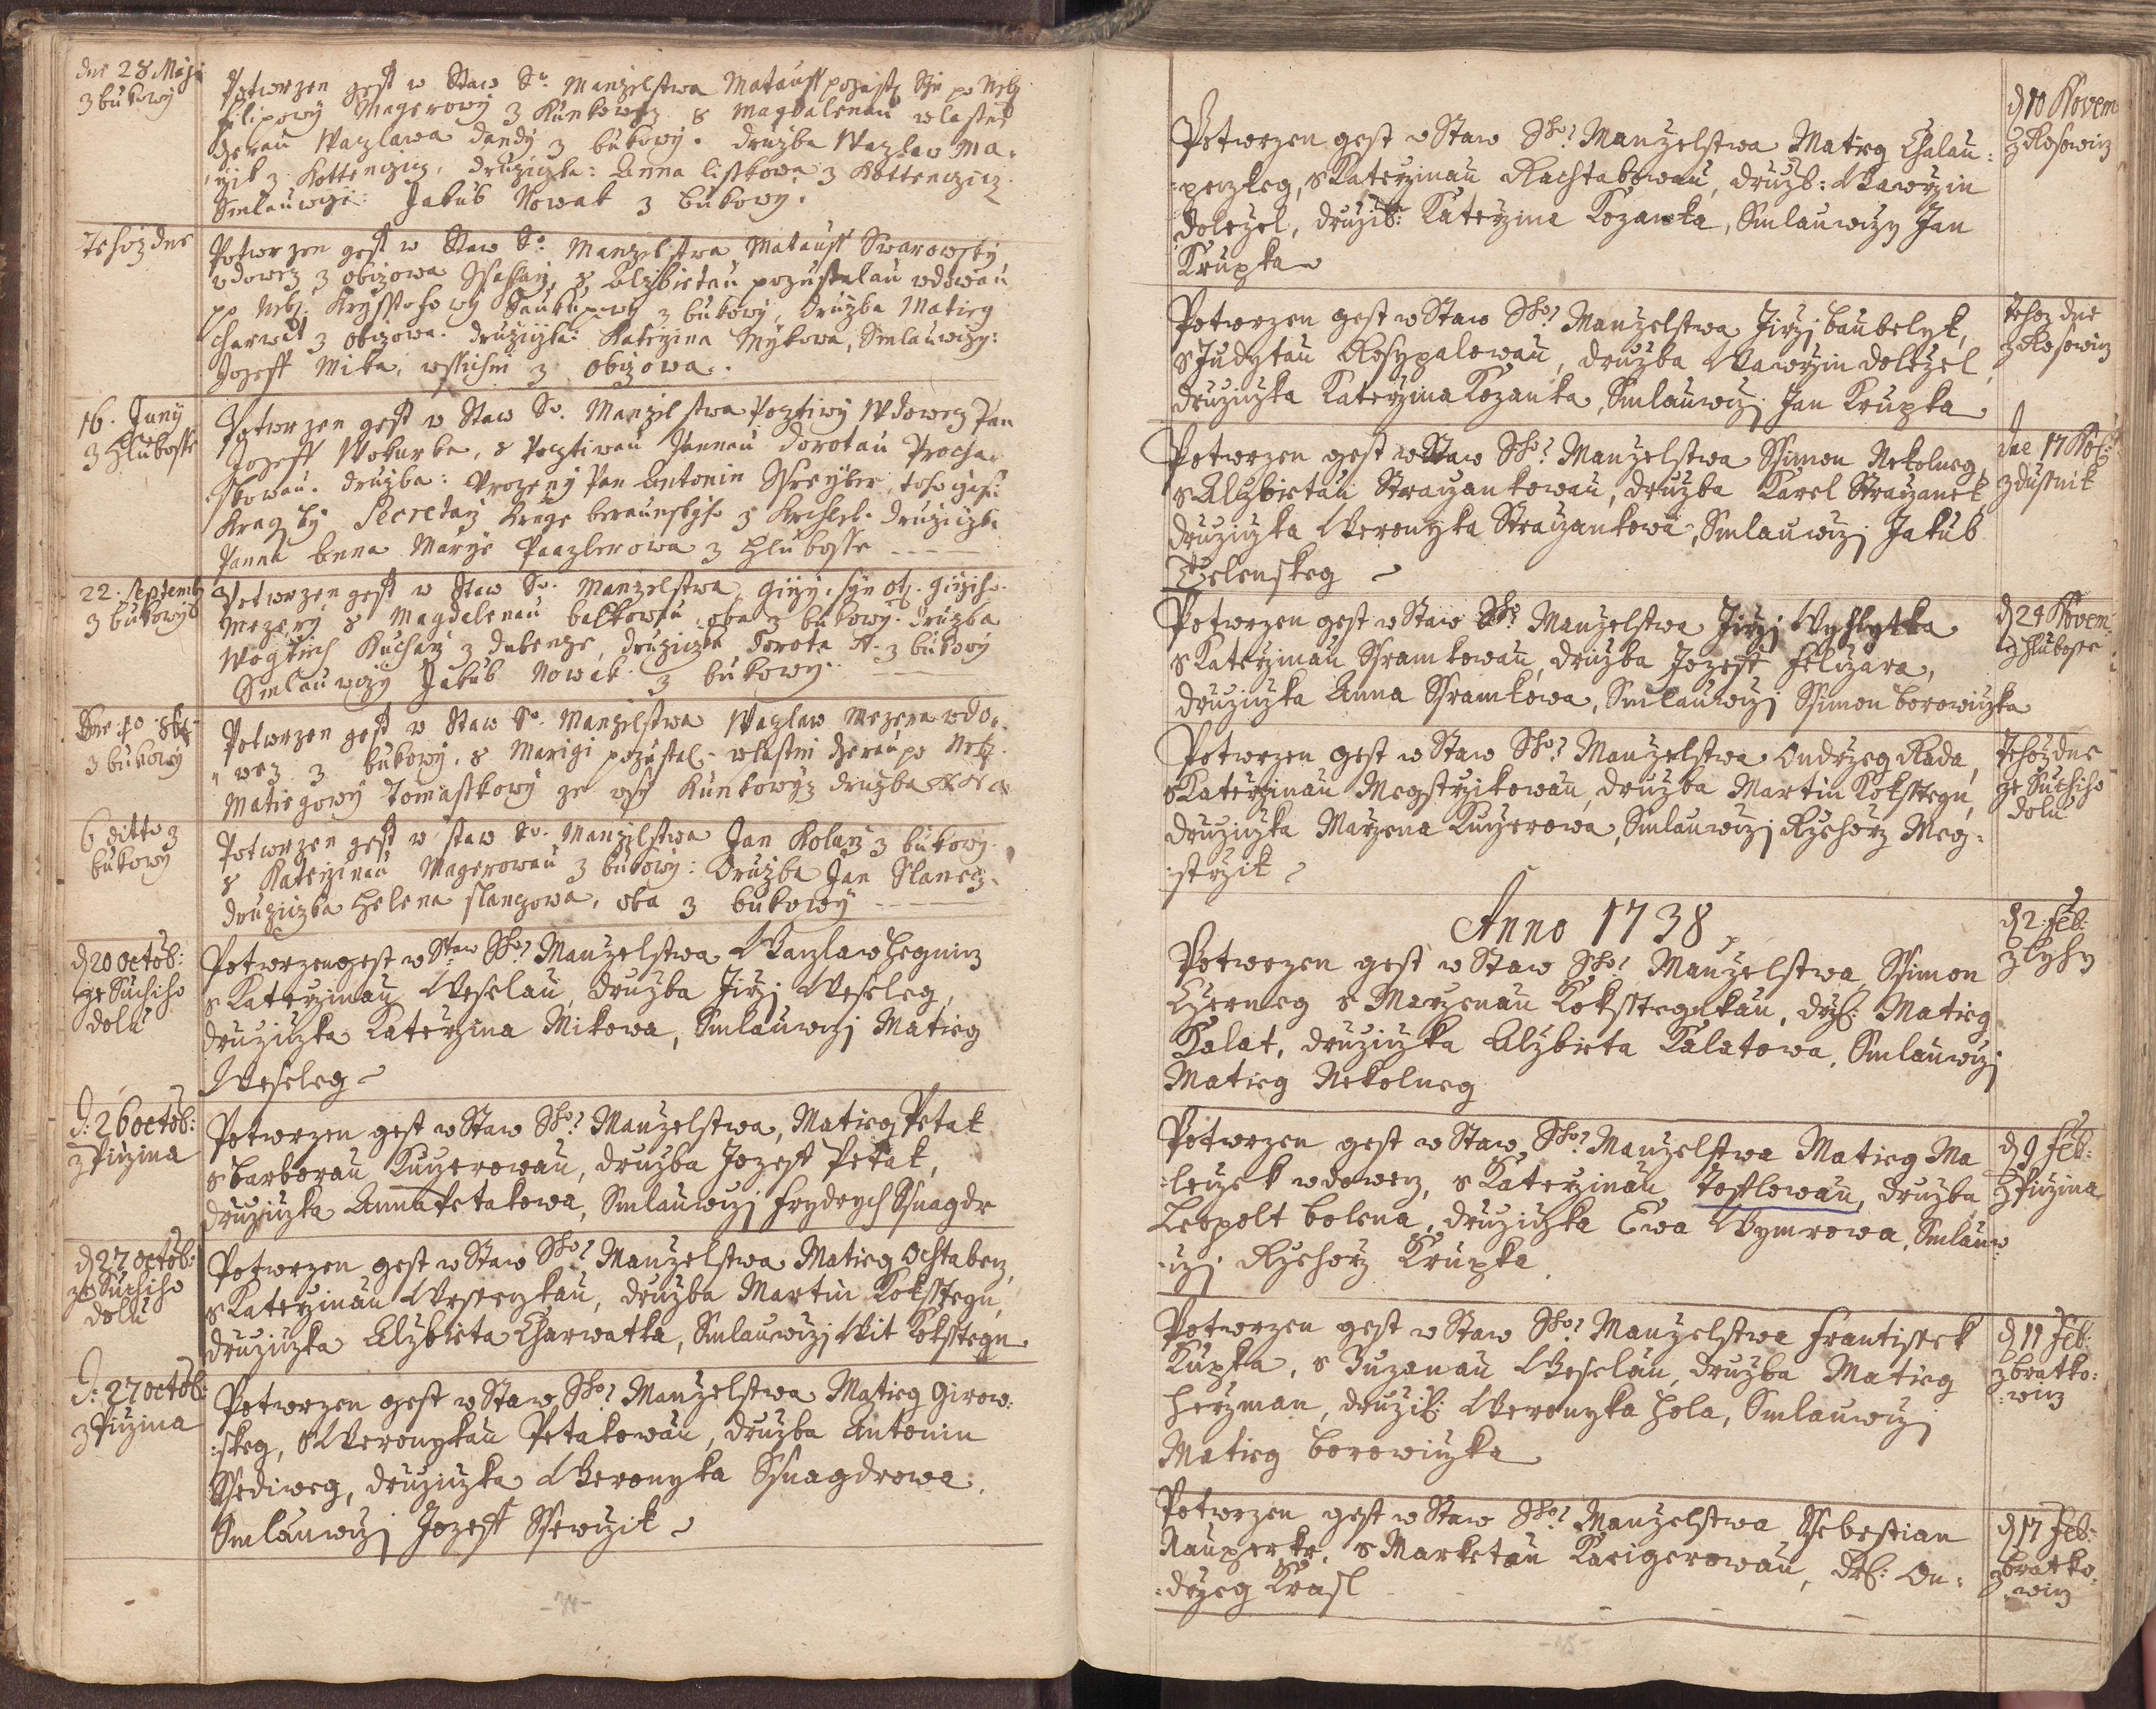 dne 28 Maji
z bukowy
Potwrzen gest w Staw Sv. Manzelstwa Matauss pozost. Syn po Neb.
Filipowy Magerowy z Kunkowicz s Magdalenau wlastni
Dcerau Waczlawa dandy z bukowy. druzba Waczlaw Ma-
z Kottenczicz, druziczka: Anna Listkowa z Kottencicz
Smlauwczi: Jakub Nowak z bukowy.
Tehoz dne
Potwrzen gest w Staw Sv. Manzelstwa Matauss Swarowsky
wdowecz z obczowa s Alzbietau pozustalau wdowau
po Neb. Krysstofowy z bukowy, Druzba Matieg
Charwat z obczowa. druziczka: Katerzina Mykowa, Smlauwczy:
Jozeff Mika, wssichni z Obczowa.
16. Juny
z Hlubosse
Potwrzen gest w Staw Sv. Manzelstwa Pocztiwy Wdowecz Pan
Jozeff Wokurka, s Pocztiwau Pannau Dorotau Procha-
skowau. druzba: Urozeny Pan Antonin Ssreyber, toho czasu
Kragsky Secretarz Krage beraunskyho druziczka
Panna Anna Marye Paczlerowa z Hlubosse
22. Septemb
z bukowy
Potwrzen gest w Staw Sv. Manzelstwa Girzy, syn Girziho
Mezery s Magdalenau balkowau oba z bukowy. druzba
Wogtiech Kucharz z dubencze, druziczka Dorota z bukowy
Smlauwczy Jakub Nowak z bukowy.
z bukowy
Potwrzen gest w Staw Sv. Manzelstwa Waczlaw Mezera wdo-
wecz z bukowy, s Marigi pozustal. wlastni dcerau po Neb.
Matiegowy Tomasskowy ze wsy Kunkowycz druzba
6 ditto z
bukowy
Potwrzen gest w staw Sv. Manzelstwa Jan Kolarz z bukowy.
s Katerzinau Magerowau z bukowy: Druzba Jan Slanecz.
druziczka Helena slanczowa, oba z bukowy
d 20 octob:
ze Suchiho
dolu
Potwrzen gest w Staw Sho. Manzelstwa Waczlaw Hegnicz
s Katerzinau Weselau, druzba Jirzi Weseleg,
druziczka Katerzina Mikowa, Smlauwczi Matieg
Weseleg
d: 26 octob:
z Piczina
Potwrzen gest w Staw Sho. Manzelstwa, Matieg Petak
s barborau Kuczerowau, druzba Jozeff Petak,
druziczka Anna Petakowa, Smlauwczi Frydrych Ssnagdr
d 27 octob:
ze Suchiho
dolu
Potwrzen gest w Staw Sho. Manzelstwa Matieg Ochtabecz,
s Katerzinau druzba Martin Koksstegn,
druziczka Alzbieta Charwatka, Smlauwczi Wit Koksstegn
d: 27 octob:
z Piczina
Potwrzen gest w Staw Sho. Manzelstwa Matieg Girow:
:skeg, s Weronykau Petakowau, druzba Antonin
Ssediweg, druziczka Weronyka Ssnagdrowa,
Smlauwczi Jozeff Ssewczik
-34-
d 10 Novem
z Rosowicz
Potwrzen gest w Staw Sho. Manzelstwa Matieg Chalau:
:peczkeg, s Katerzinau Rachtabowau, druzb: Wawrzin
Dolezel, druzic: Katerzina Kozanka, Smlauwczy Jan
Krupka
Tehoz dne
z Rosowicz
Potwrzen gest w Staw Sho. Manzelstwa Jirzi baubelyk,
s Judytau Rosypalowau, druzba Wawrzin dolezel,
druziczka Katerzina Kozanka, Smlauwczi Jan Krupka
dne 17 Nob:
z dusnik
Potwrzen gest w Staw Sho. Manzelstwa Ssimon Nekolneg
s Alzbietau Straczankowau, druzba Karel Straczanek,
druziczka Weronyka Straczankowa, Smlauwczi Jakub
Zelenskeg
d 24 Novem:
z Hlubosse
Potwrzen gest w Staw Sho. Manzelstwa Jirzi Wyhlytka
s Katerzinau Ssramkowau, druzba Jozeff Feliczara,
druziczka Anna Ssramkowa, Smlauwczi Ssimon borowiczka
Tehoz dne
ze Suchiho
dolu
Potwrzen gest w Staw Sho. Manzelstwa Ondrzeg Rada,
s Katerzinau Megstrzikowau, druzba Martin Koksstegn,
druziczka Marzena Kuczerowa, Smlauwczi Rzehorz Meg:
:strzik
Anno 1738
d 2. Feb:
z Lyhy
Potwrzen gest w Staw Sho. Manzelstwa Ssimon
Czerneg s Marzenau Koksstegnkau, drzb: Matieg
Kalat, druziczka Alzbieta Kalatowa, Smlauwczi
Matieg Nekolneg
d 9 Feb:
z Piczina
Potwrzen gest w Staw Sho. Manzelstwa Matieg Ma
:leczek wdowecz, s Katerzinau Tosslowau, druzba
Leopolt bolena, druziczka Ewa Wymrowa, Smlauw:
:czi Rzehorz Krupka
d 11 Feb:
z bratko:
:wicz
Potwrzen gest w Staw Sho. Manzelstwa Frantissek
Kupka, s Zuzanau Weselau, druzba Matieg
Herzman, druzic: Weronyka Hola, Smlauwczi
Matieg borowiczka
d 17 Feb:
z bratko:
:wicz
Potwrzen gest w Staw Sho. Manzelstwa Ssebestian
Nauperke, s Marketau Kareigerowau, drb: On:
:drzeg Krasl
-35-